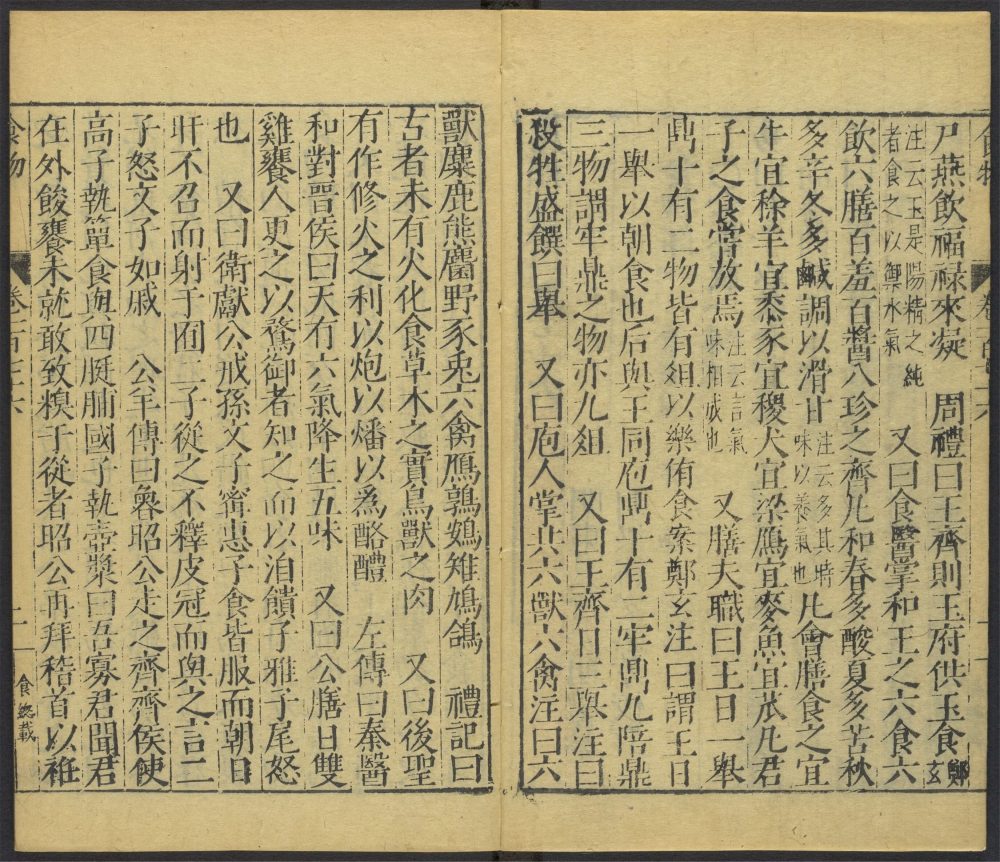 食物
卷一百四十六
一
尸燕飲福祿來凝　周禮曰王齊則玉府供玉食鄭玄
注云玉是陽精之純者食之以禦水氣　又曰食醫掌和王之六食六
飲六膳百羞百醬八珍之齊凡和春多酸夏多苦秋
多辛冬多鹹調以滑甘注云多其時味以養氣也凡會膳食之宜
牛宜稌羊宜黍豕宜稷犬宜梁鴈宜麥魚宜苽凡君
子之食嘗放焉注云言氣味相成也　又膳夫職曰王日一舉
鼎十有二物皆有俎以樂侑食案鄭玄注曰謂王日
一舉以朝食也后與王同庖鼎十有二牢鼎九陪鼎
三物謂牢鼎之物亦九俎　又曰王齊日三舉注曰
殺牲盛饌曰舉　又曰庖人掌共六獸六禽注曰六
獸麋鹿熊麕野豕兔六禽鴈鶉鷃雉鳩鴿　禮記曰
古者未有火化食草木之實鳥獸之肉　又曰後聖
有作修火之利以炮以燔以為酪醴　左傳曰秦醫
和對晉侯曰天有六氣降生五味　又曰公膳日雙
雞饔人更之以鶩御者知之而以洎饋子雅子尾怒
也　又曰衛獻公戒孫文子甯惠子食皆服而朝日
旰不召而射于囿二子從之不釋皮冠而與之言二
子怒文子如戚　公羊傳曰魯昭公走之齊齊侯使
高子執簞食與四脡脯國子執壺漿曰吾寡君聞君
在外餕饔未就敢致糗于從者昭公再拜稽首以袵
食物
卷一百四十六
二
食總載